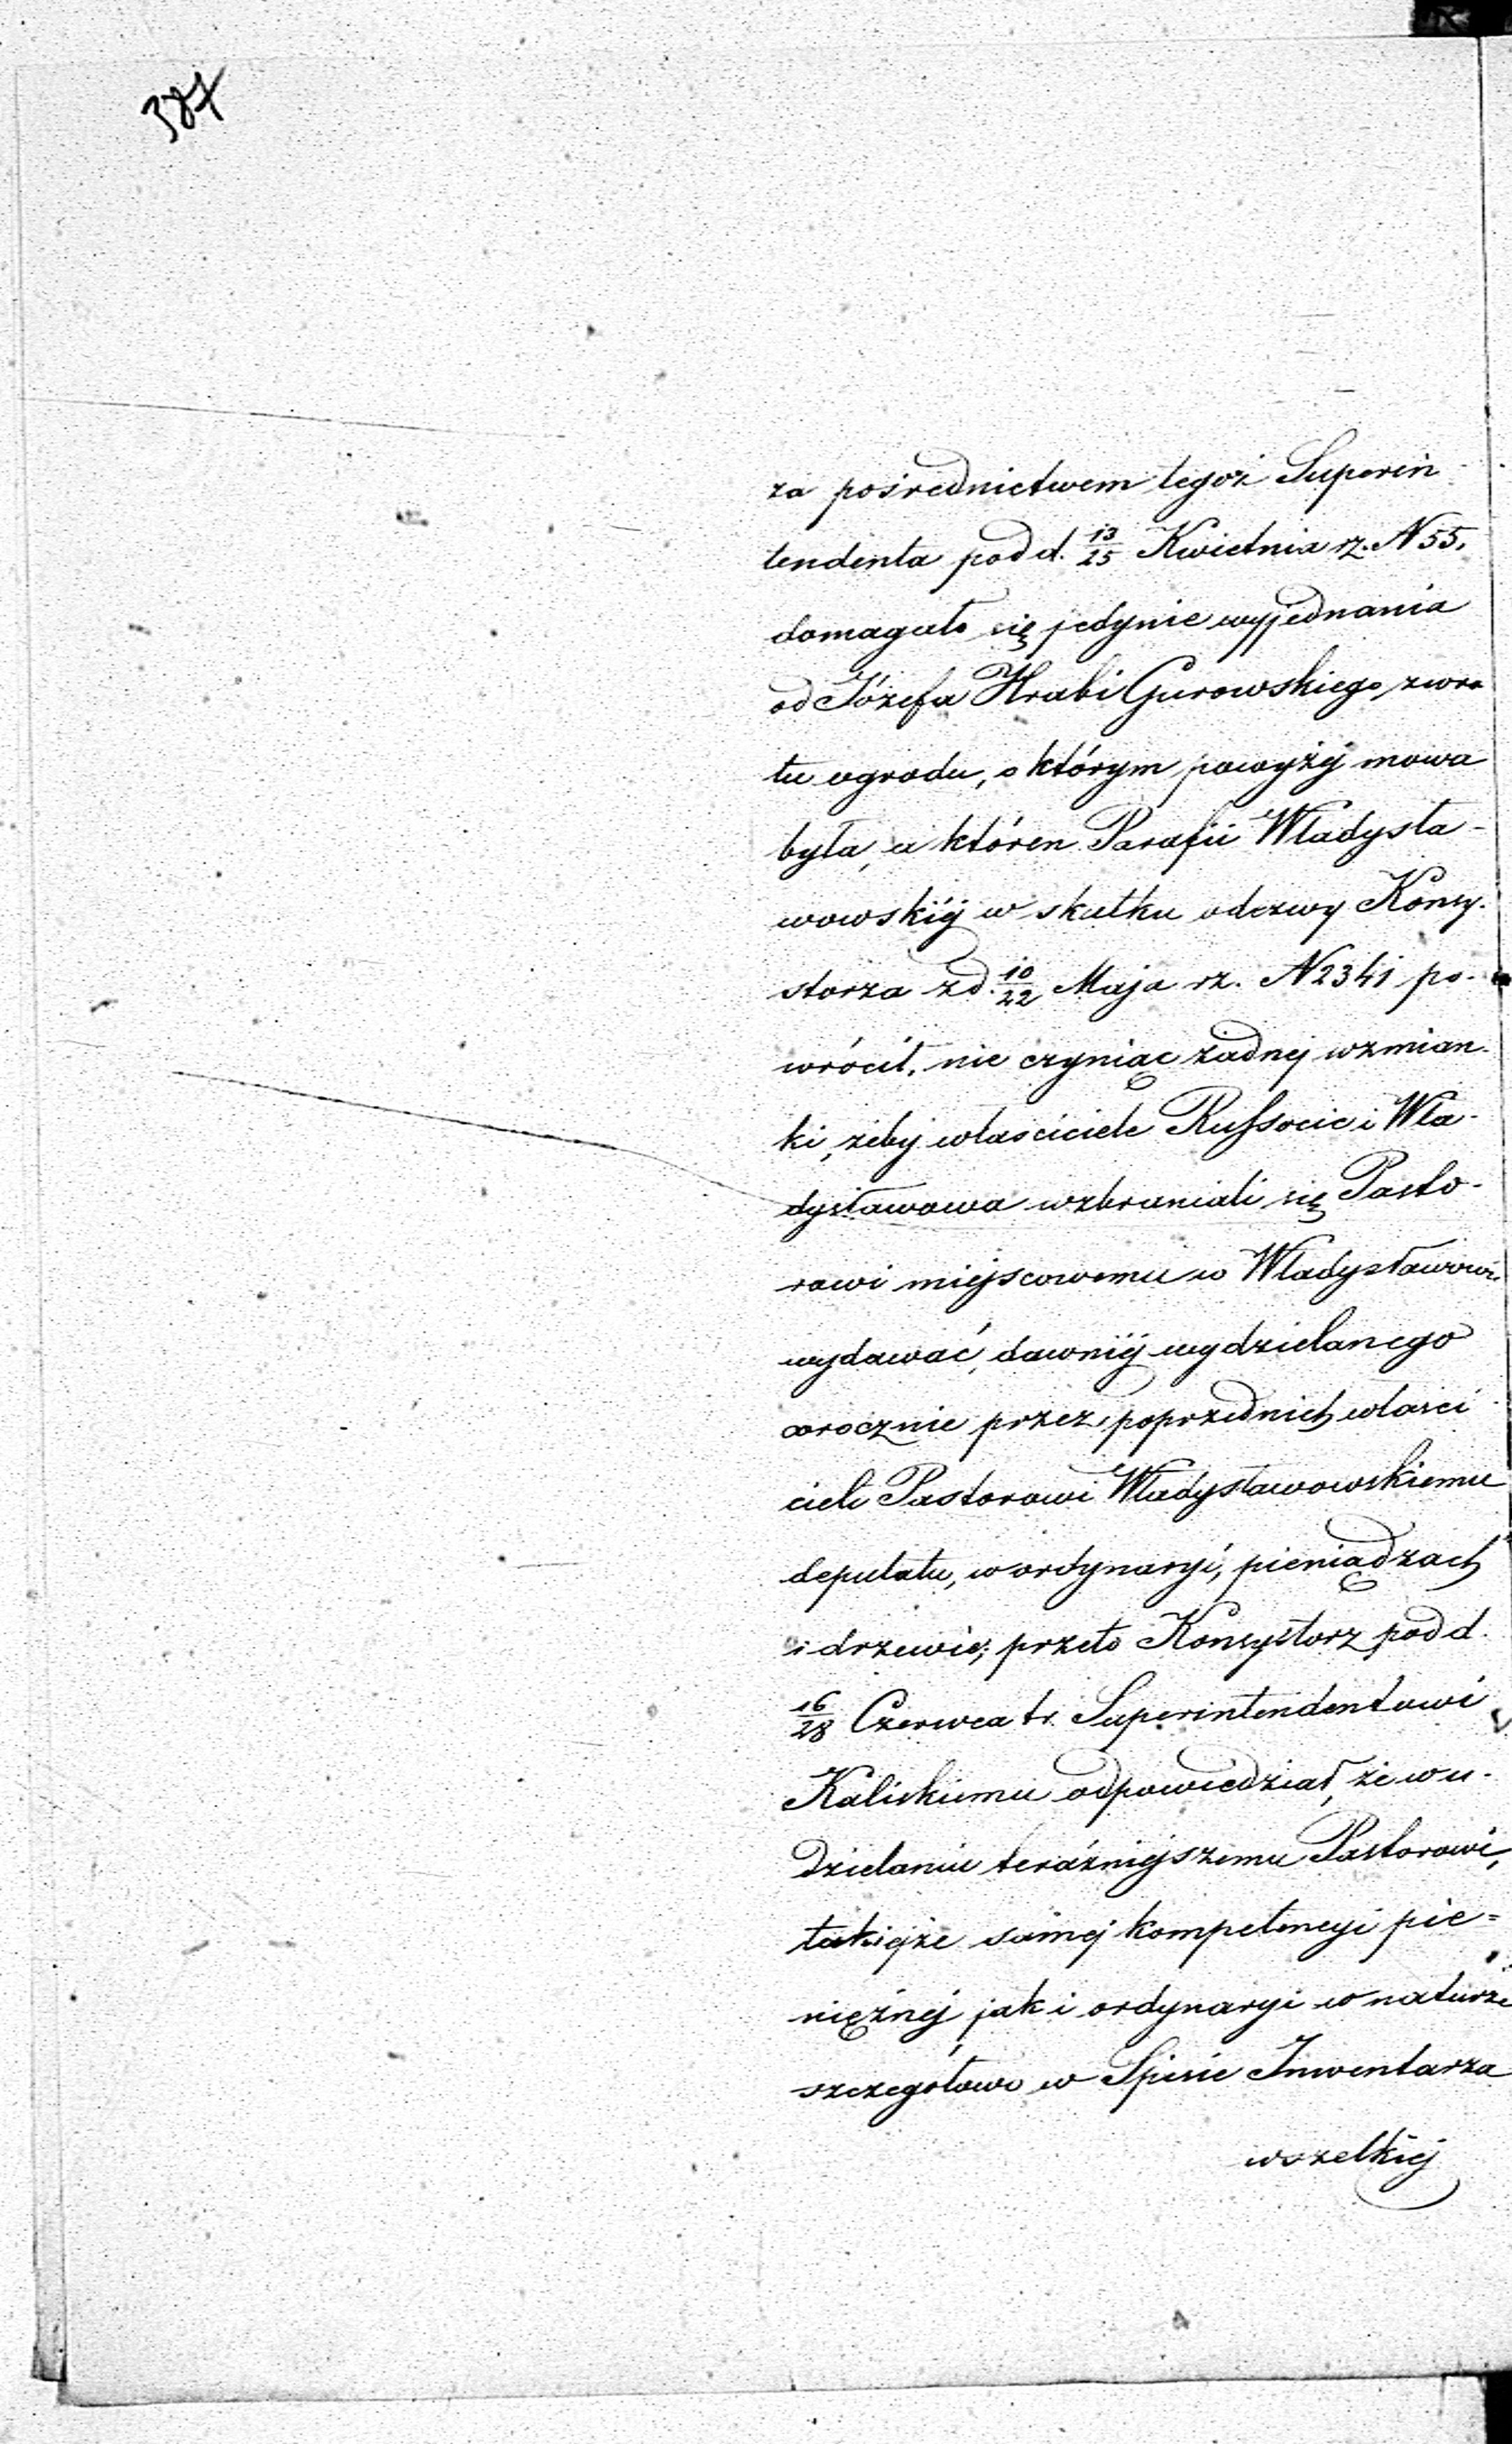 387
za pośrednictwem tegoż Superin
tendenta pod d. 13/25 Kwietnia rz. N 55,
domagało się jedynie wyjednania
od Józefa Hrabi Gurowskiego zwro
tu ogrodu, o którym powyżej mowa
była, a któren Parafii Władysła-
wowskiéj w skutku odezwy Konsy-
storza z d. 10/22 Maja rz. N 2341 po-
wrócił, nie czyniąc żadnej wzmian-
ki, żeby właściciele Russocic i Wła-
dysławowa wzbraniali się Pasto-
rowi miejscowemu w Władysławowie
wydawać, dawniéj wydzielanego
corocznie przez poprzednich właści
cieli Pastorowi Władysławowskiemu
deputatu, w ordynaryi, pieniądzach
i drzewie; przeto Konsystorz pod d.
16/28 Czerwca tr. Superintendentowi
Kaliskiemu odpowiedział, że w u-
dzielaniu teraźniejszemu Pastorowi,
takiejże samej kompetencyi pie=
niężnéj, jak i ordynaryi w naturze
szczegółowo w Spisie Inwentarza
wszelkiej